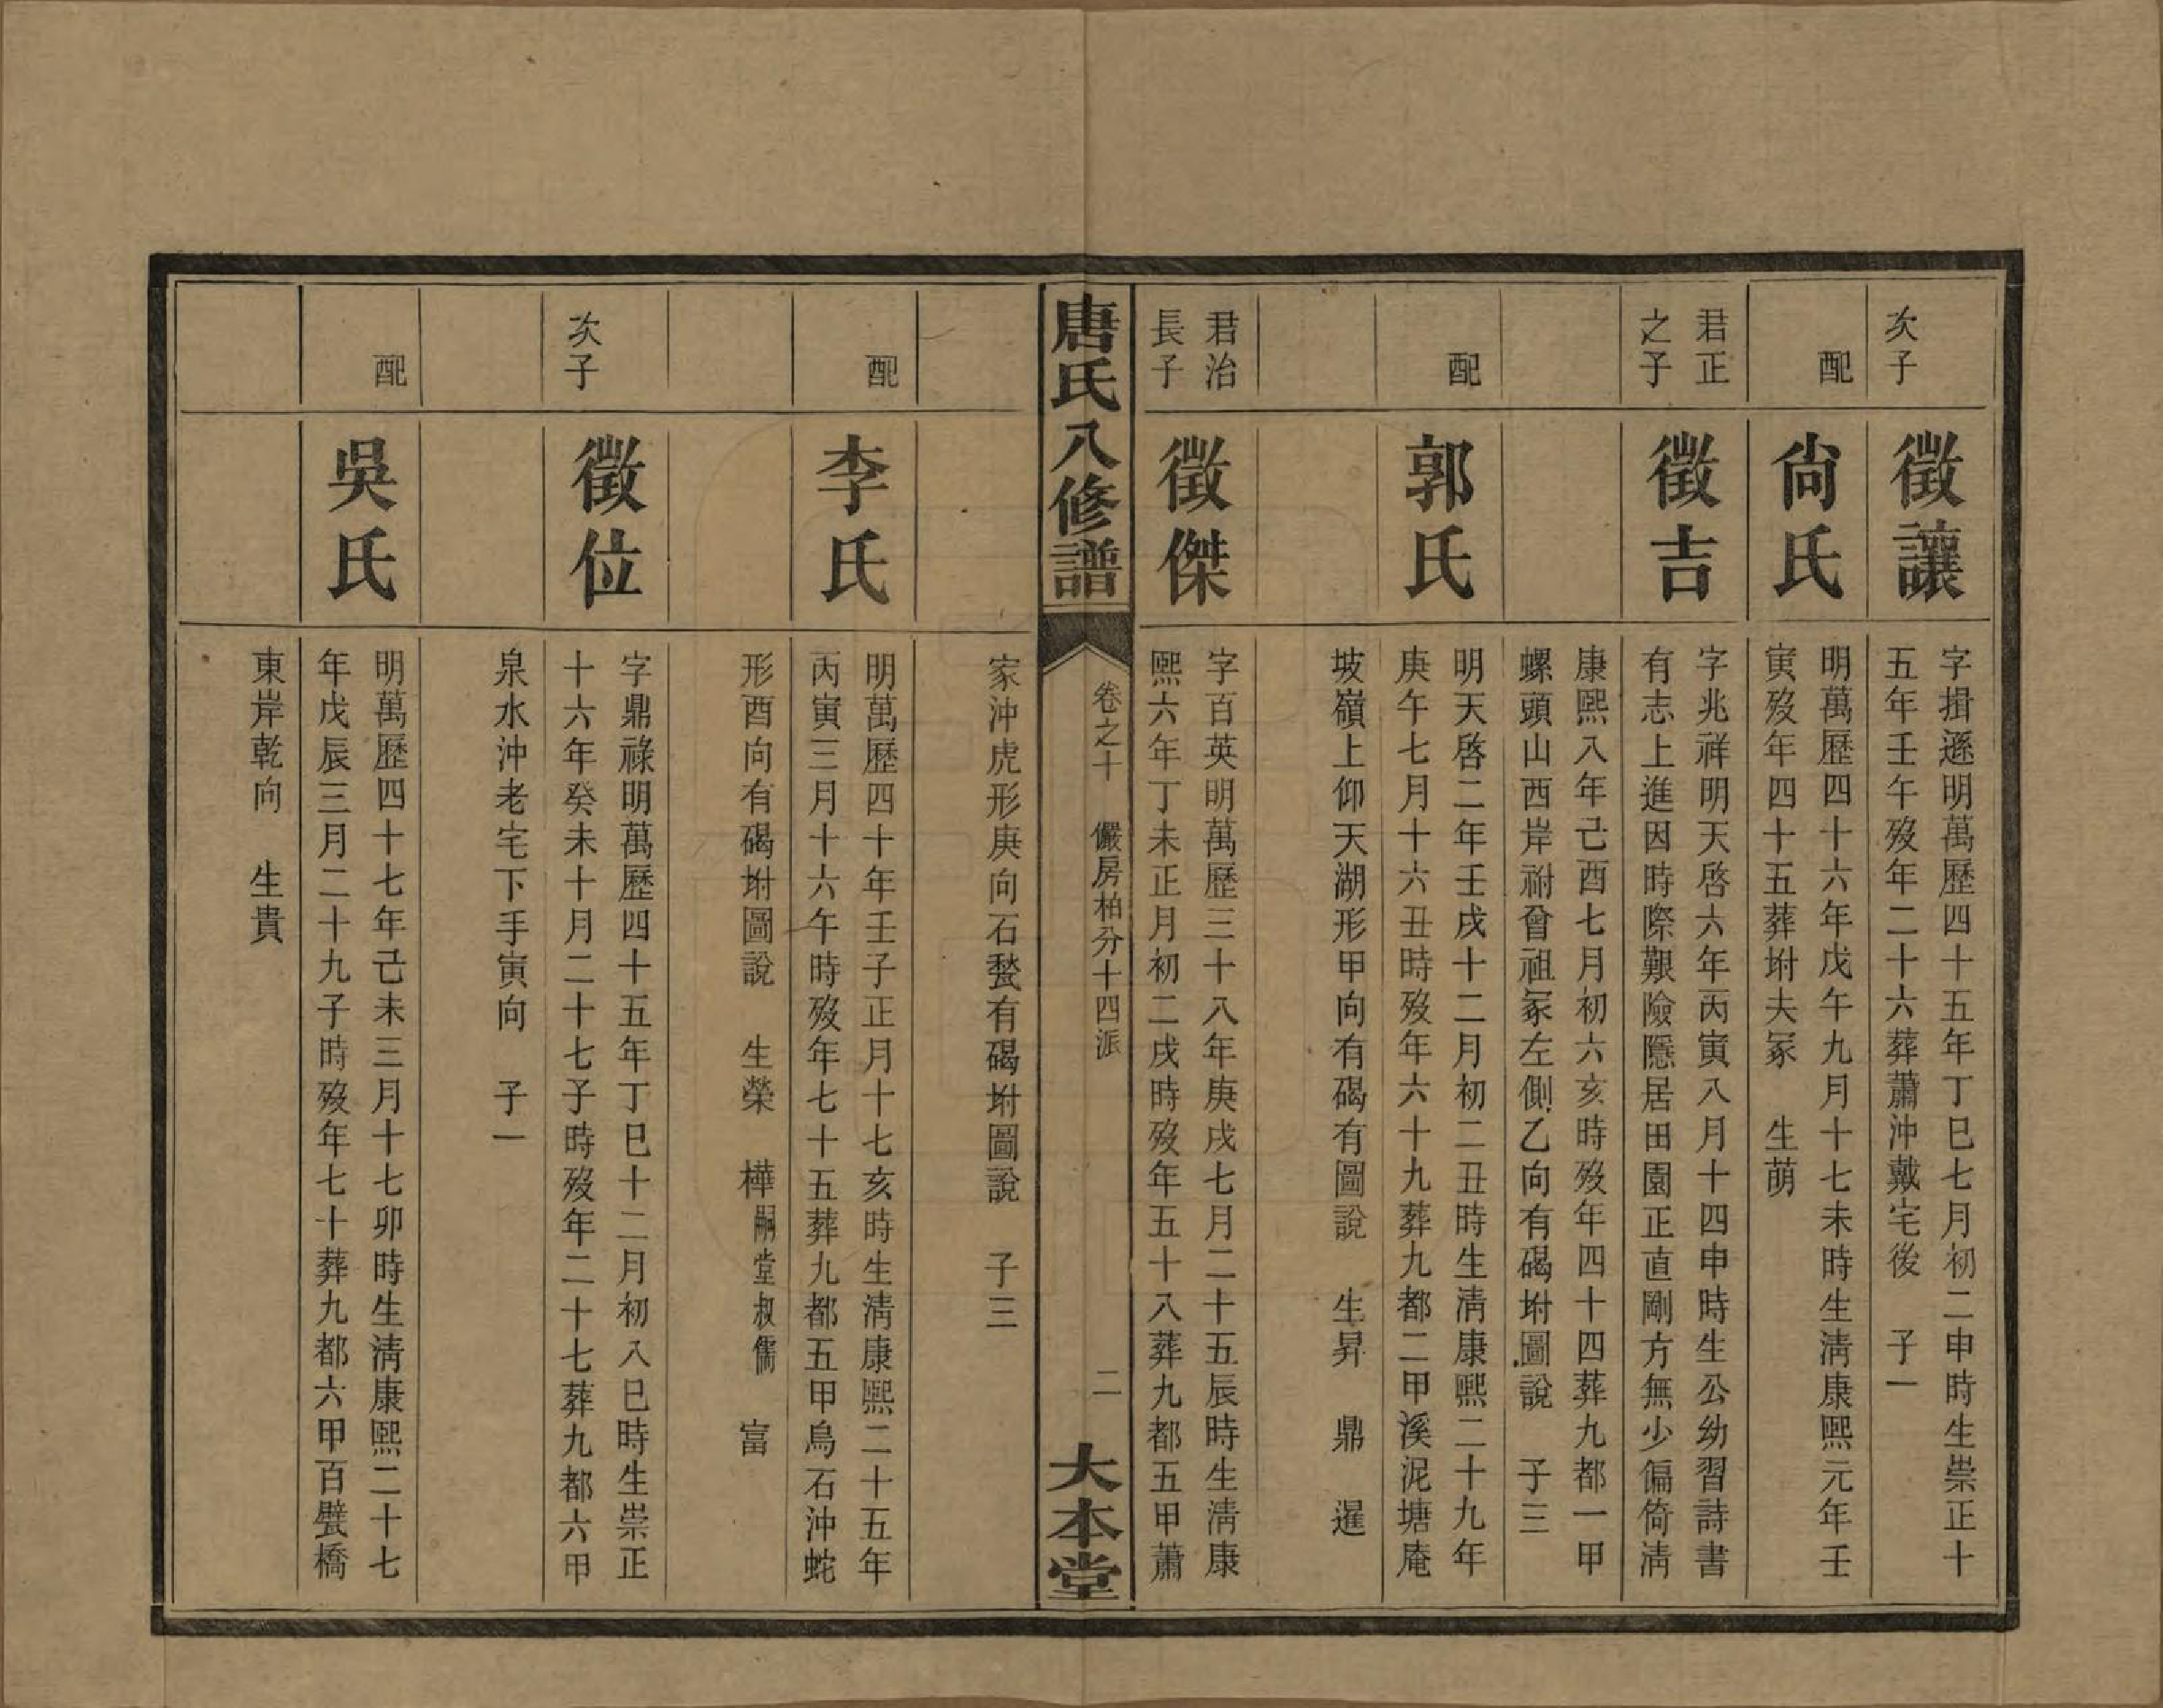 次子
徵讓
字揖遜明萬歷四十五年丁巳七月初二申時生崇正十
五年壬午歿年二十六葬蕭沖戴宅後　子一
配
尙氏
明萬歷四十六年戊午九月十七未時生淸康熙元年壬
寅歿年四十五葬坿夫冢　生萌
君正
之子
徵吉
字兆祥明天啓六年丙寅八月十四申時生公幼習詩書
有志上進因時際艱險隱居田園正直剛方無少偏倚淸
康熙八年己酉七月初六亥時歿年四十四葬九都一甲
螺頭山西岸祔曾祖冢左側乙向有碣坿圖說　子三
配
郭氏
明天啓二年壬戌十二月初二丑時生淸康熙二十九年
庚午七月十六丑時歿年六十九葬九都二甲溪泥塘庵
坡嶺上仰天湖形甲向有碣有圖說　生昇　鼎　暹
君治
長子
徵傑
字百英明萬歷三十八年庚戌七月二十五辰時生淸康
熙六年丁未正月初二戌時歿年五十八葬九都五甲蕭
唐氏八修譜
卷之十　儼房柏分十四派
二
大本堂
家沖虎形庚向石甃有碣坿圖說　子三
配
李氏
明萬歷四十年壬子正月十七亥時生淸康熙二十五年
丙寅三月十六午時歿年七十五葬九都五甲烏石沖蛇
形酉向有碣坿圖說　生榮　樺嗣堂叔儒　富
次子
徵位
字鼎祿明萬歷四十五年丁巳十二月初八巳時生崇正
十六年癸未十月二十七子時歿年二十七葬九都六甲
泉水沖老宅下手寅向　子一
配
吳氏
明萬歷四十七年己未三月十七卯時生淸康熙二十七
年戊辰三月二十九子時歿年七十葬九都六甲百甓橋
東岸乾向　生貴